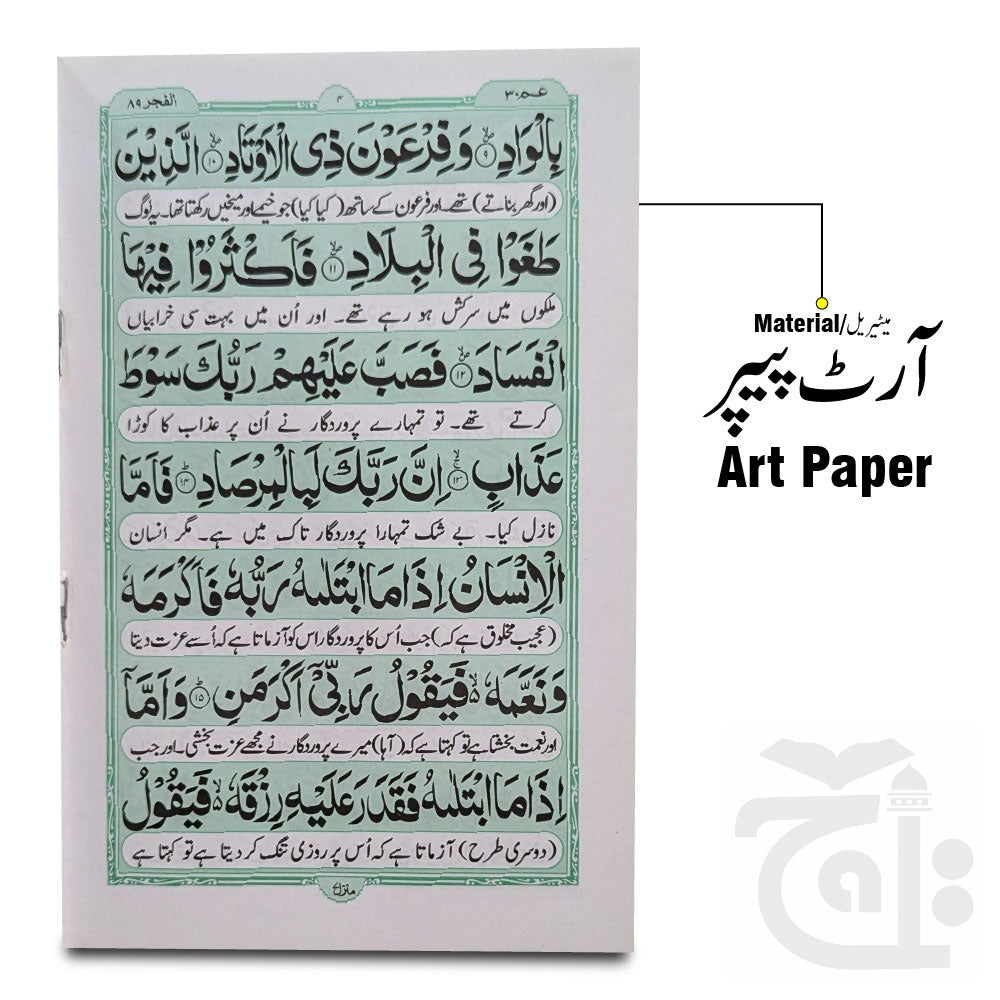 عم ۳۰
۴
الفجر ۸۹
بِالْوَادِ ۙ۹ وَ فِرْعَوْنَ ذِی الْاَوْتَادِ ۙ۱۰ الَّذِیْنَ
(اور گھر بناتے) تھے۔ اور فرعون کے ساتھ (کیا کیا) جو خیمے اور میخیں رکھتا تھا۔ یہ لوگ
طَغَوْا فِی الْبِلَادِ ۙ۱۱ فَاَكْثَرُوْا فِیْهَا
ملکوں میں سرکش ہو رہے تھے۔ اور اُن میں بہت سی خرابیاں
الْفَسَادَ ۙ۱۲ فَصَبَّ عَلَیْهِمْ رَبُّكَ سَوْطَ
کرتے تھے۔ تو تمہارے پروردگار نے اُن پر عذاب کا کوڑا
عَذَابٍ ۚ۱۳ اِنَّ رَبَّكَ لَبِالْمِرْصَادِ ؕ۱۴ فَاَمَّا
نازل کیا۔ بے شک تمہارا پروردگار تاک میں ہے۔ مگر انسان
الْاِنْسَانُ اِذَا مَا ابْتَلٰىهُ رَبُّهٗ فَاَكْرَمَهٗ
(عجیب مخلوق ہے کہ) جب اُس کا پروردگار اس کو آزماتا ہے کہ اُسے عزت دیتا
وَ نَعَّمَهٗ ۙ۬ فَیَقُوْلُ رَبِّیْۤ اَكْرَمَنِ ؕ۱۵ وَ اَمَّاۤ
اور نعمت بخشتا ہے تو کہتا ہے کہ (آہا) میرے پروردگار نے مجھے عزت بخشی۔ اور جب
اِذَا مَا ابْتَلٰىهُ فَقَدَرَ عَلَیْهِ رِزْقَهٗ ۙ۬ فَیَقُوْلُ
(دوسری طرح) آزماتا ہے کہ اُس پر روزی تنگ کر دیتا ہے تو کہتا ہے
منزل
Material/میٹیریل
آرٹ پیپر
Art Paper